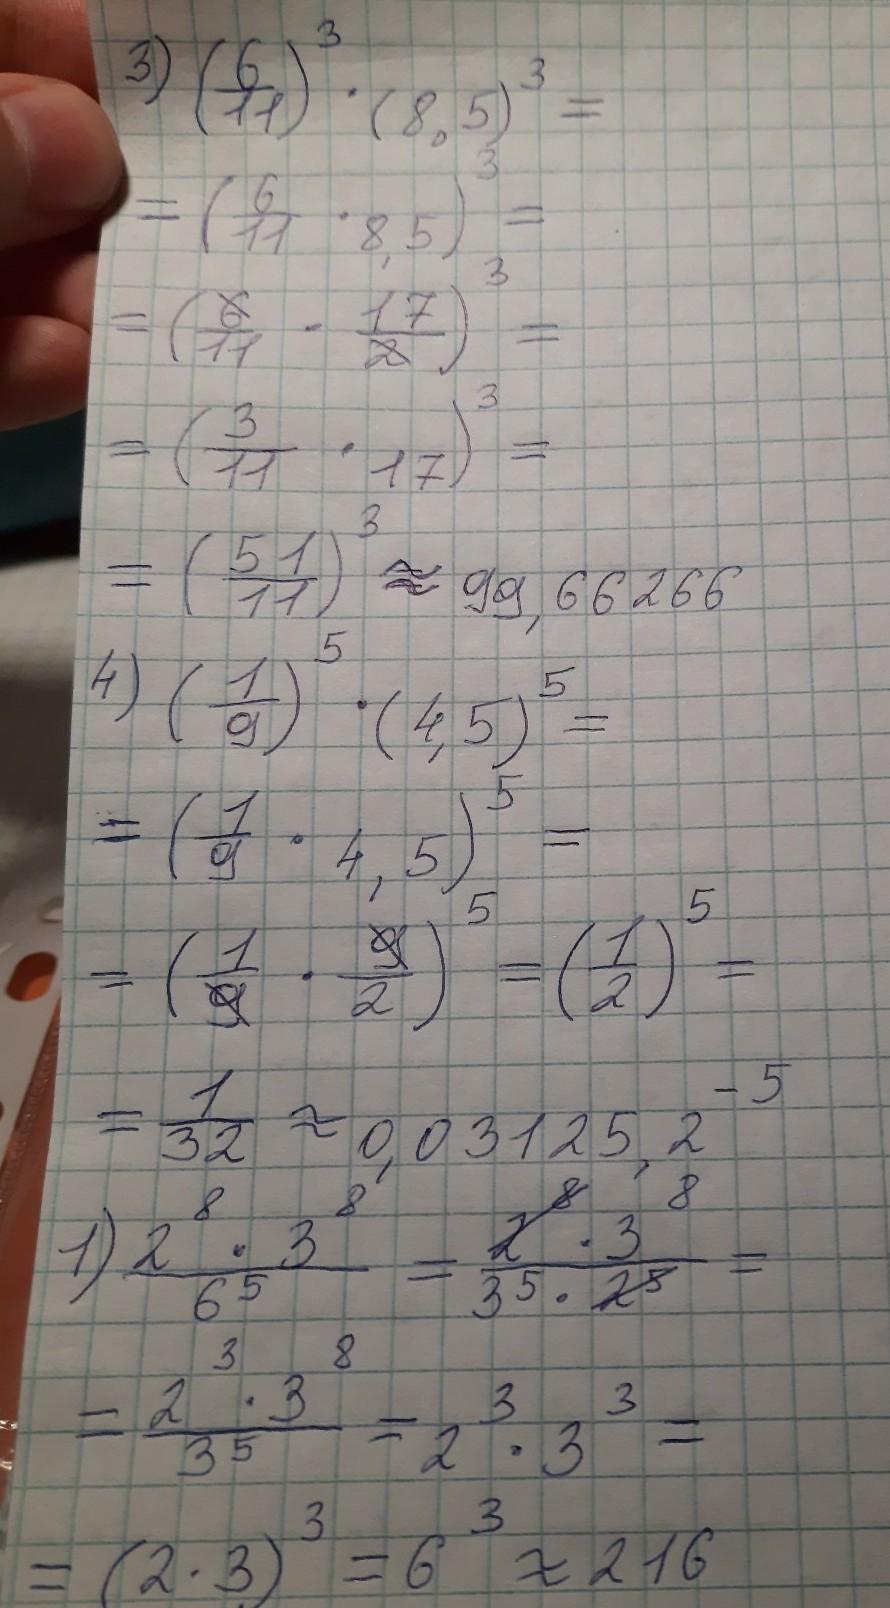 3) (6/11)³ · (8,5)³ =
= (6/11 · 8,5)³ =
= (6/11 · 17/2)³ =
= (3/11 · 17)³ =
= (51/11)³ ≈ 99,66266
4) (1/9)⁵ · (4,5)⁵ =
= (1/9 · 4,5)⁵ =
= (1/9 · 9/2)⁵ = (1/2)⁵ =
= 1/32 ≈ 0,03125, 2⁻⁵
1) (2⁸ · 3⁸)/6⁵ = (2⁸ · 3⁸)/(3⁵ · 2⁵) =
= (2³ · 3⁸)/3⁵ = 2³ · 3³ =
= (2 · 3)³ = 6³ ≈ 216